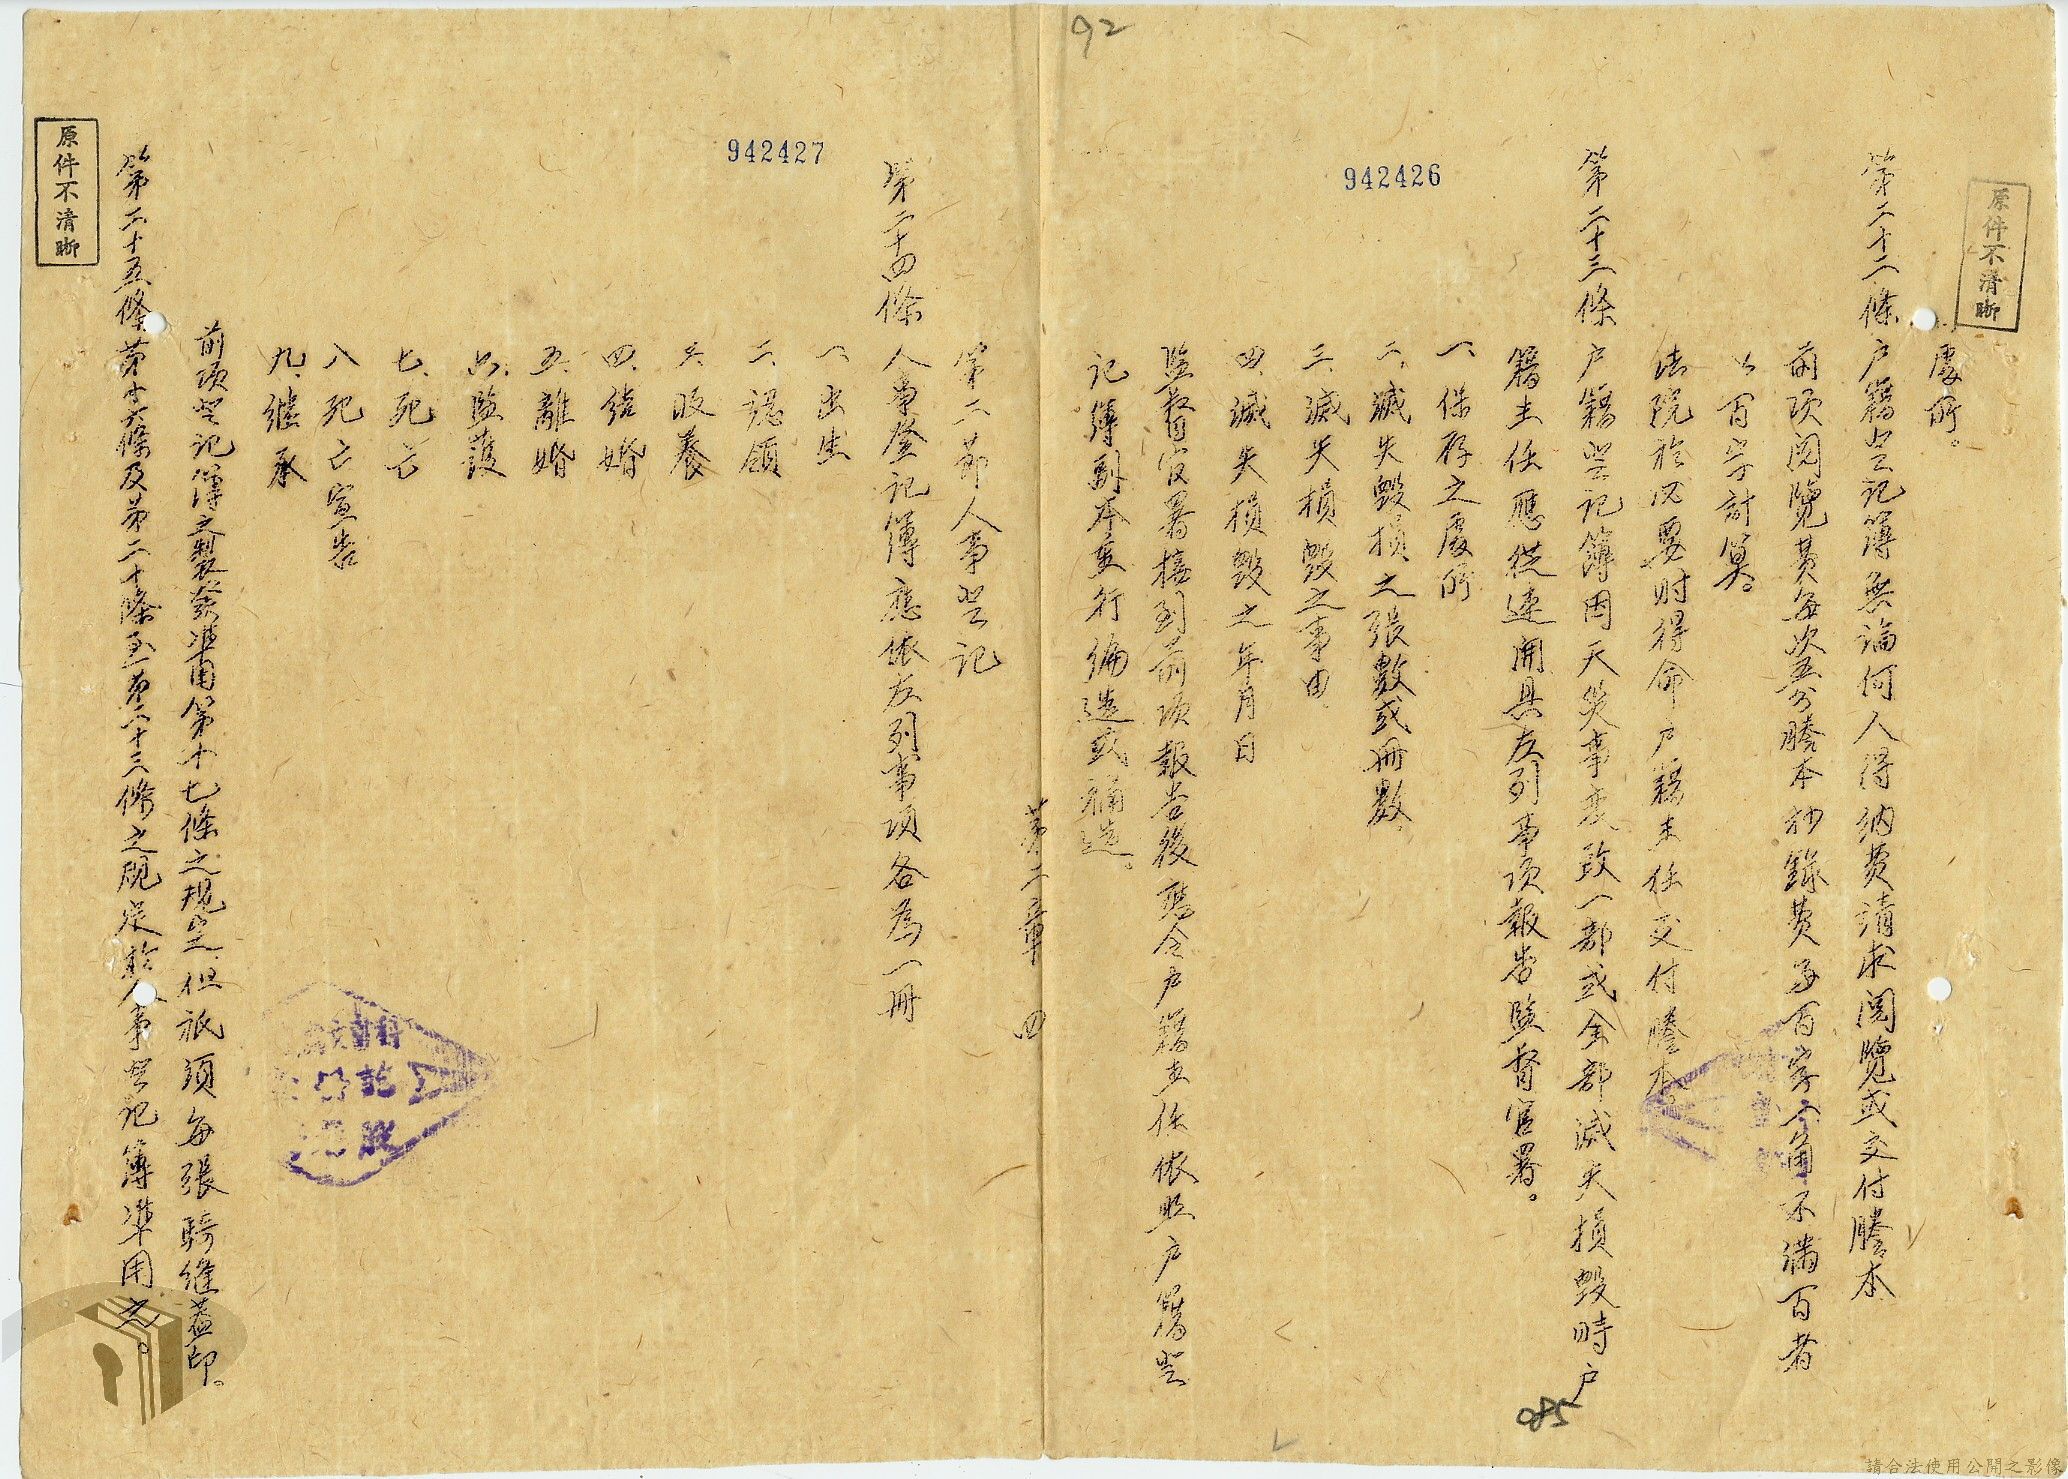 92
942426
942427
原件不清晰
處所。
第二十二條 户籍登记簿無論何人得納費請求閱覽或交付謄本
前項閱覽費每次五分謄本抄錄費每百字一角不满百者
以百字計算。
法院於必要时得命户籍主任交付謄本。
第二十三條 户籍登记簿因天災事变致一部或全部滅失損毀時户
籍主任應從速開具左列事項報告監督官署。
一、保存之處所
二、滅失毀損之張數或冊數
三、滅失損毀之事由
四、滅失損毀之年月日
監督官署接到前項報告後應令户籍主任依照户籍登
记簿副本重行编造或補造。
第二章 四
第二節 人事登记
第二十四條 人事登记簿應依左列事項各為一冊
一、出生
二、認領
三、收養
四、结婚
五、離婚
六、監護
七、死亡
八、死亡宣告
九、继承
前項登记簿之製發準用第十七條之規定、但祇須每張騎缝蓋印。
第二十五條 第十六條及第二十條至第二十三條之規定於人事登记簿準用之。
原件不清晰
085
請合法使用公開之影像